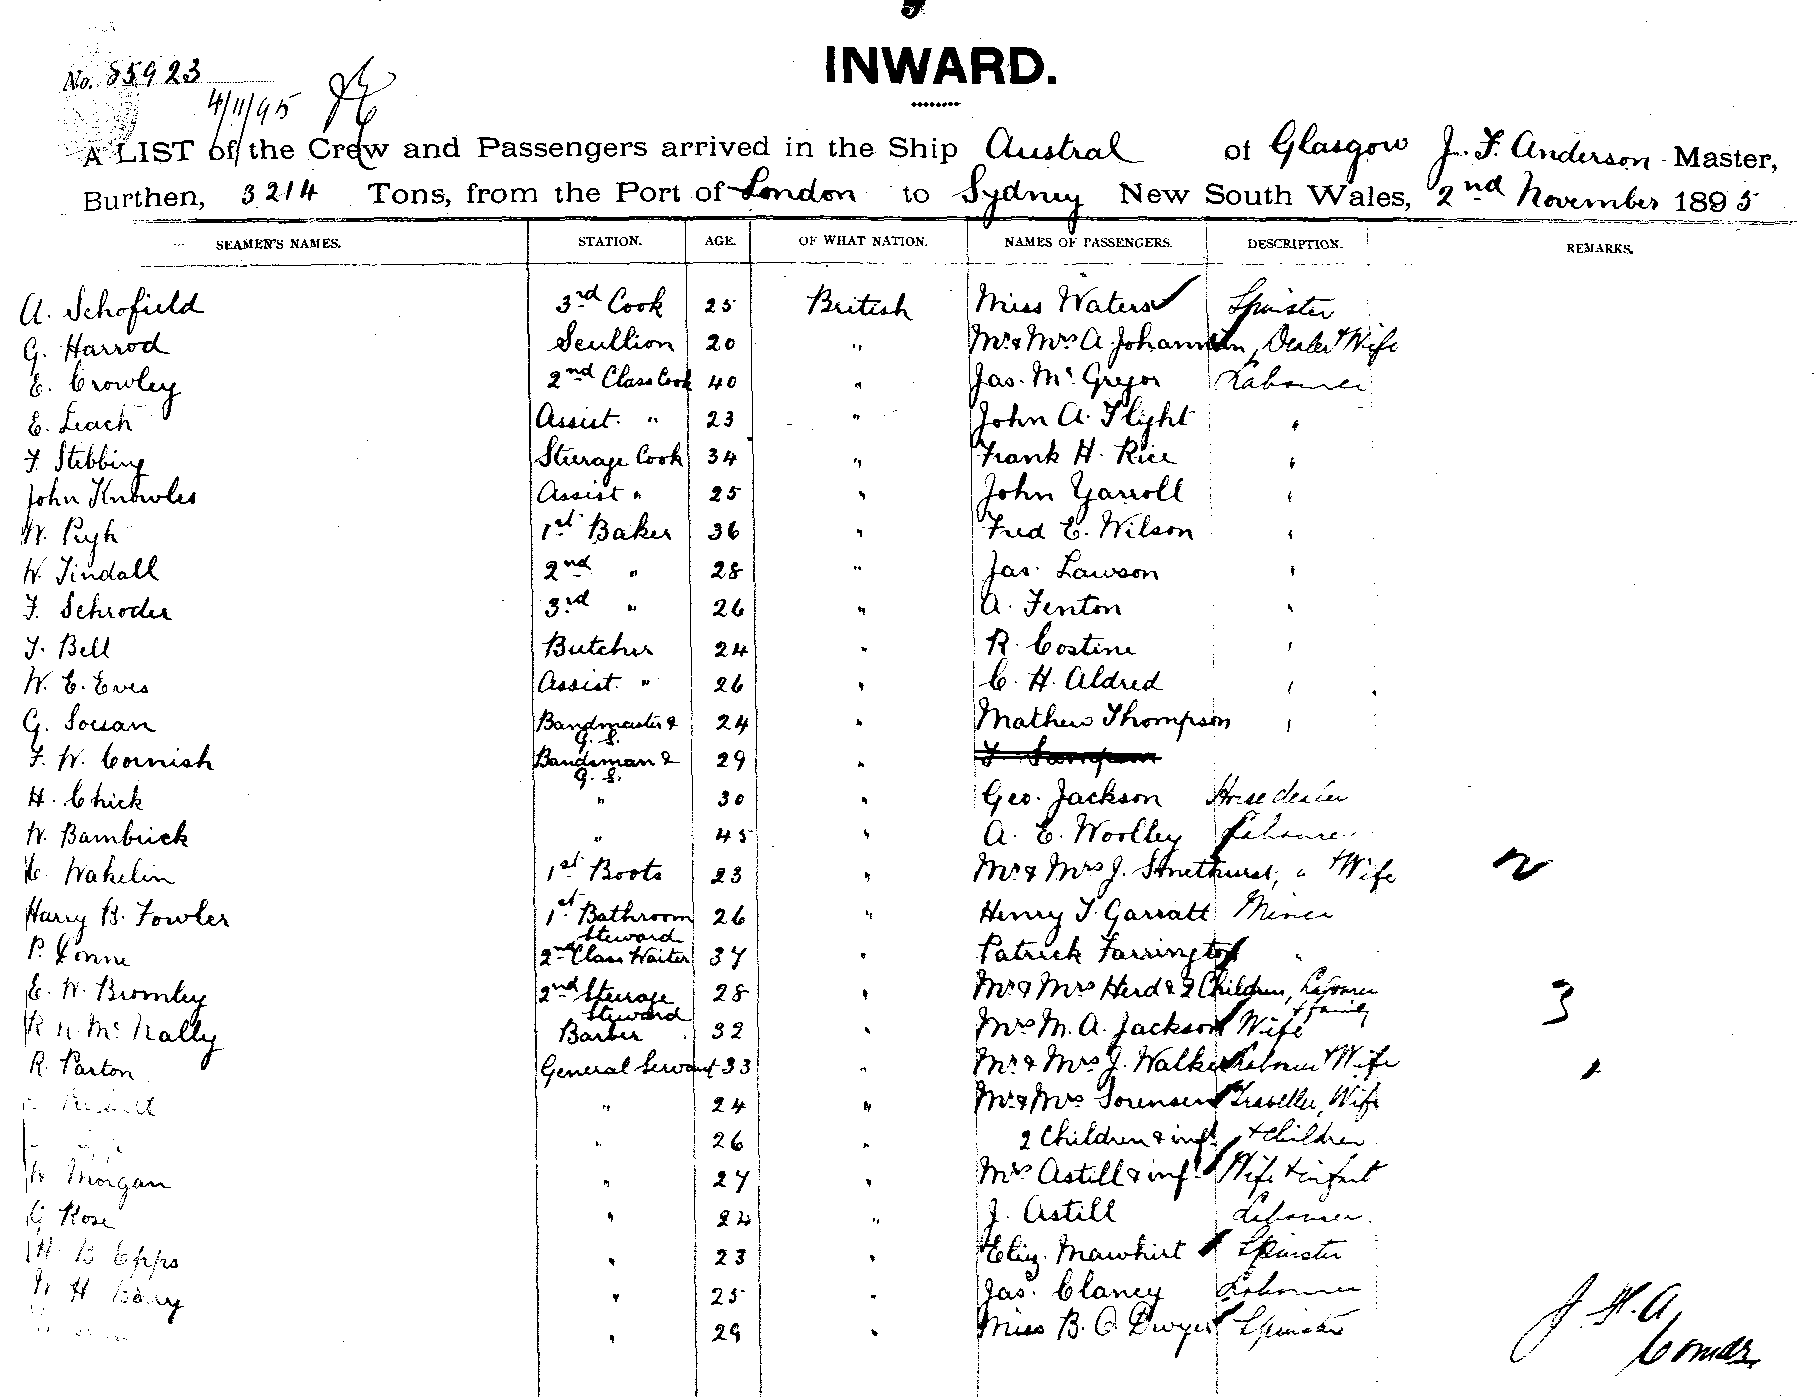 INWARD.
No. 85923
4/11/95
A LIST of the Crew and Passengers arrived in the Ship Austral of Glasgow J. F. Anderson Master,
Burthen, 3214 Tons, from the Port of London to Sydney New South Wales, 2nd November 1895
SEAMEN'S NAMES. STATION. AGE. OF WHAT NATION. NAMES OF PASSENGERS. DESCRIPTION. REMARKS.
A. Schofield 3rd Cook 25 British Miss Waters Spinster
G. Harrod Scullion 20 " Mr & Mrs A. Johannsen, Dealer & Wife
E. Crowley 2nd Class Cook 40 " Jas. McGregor Labourer
E. Leach Assist. " 23 " John A. Flight "
F. Stebbing Steerage Cook 34 " Frank H. Rice "
John Knowles Assist " 25 " John Yarroll "
W. Pugh 1st Baker 36 " Fred E. Wilson "
W. Tindall 2nd " 28 " Jas. Lawson "
F. Schroder 3rd " 26 " A. Fenton "
T. Bell Butcher 24 " R. Costine "
W. E. Eves Assist. " 26 " C. H. Aldred "
G. Sousan Bandmaster & G. S. 24 " Mathew Thompson "
F. W. Cornish Bandsman & G. S. 29 "
H. Chick " 30 " Geo. Jackson Horse dealer
W. Bambrick " 45 " A. E. Woolley Labourer
Wakelin 1st Boots 23 " Mr & Mrs J. Smethurst, " & Wife 2
Harry B. Fowler 1st Bathroom Steward 26 " Henry T. Garratt Miner
P. Conne 2nd Class Waiter 37 " Patrick Farrington "
E. W. Bromley 2nd Steerage Steward 28 " Mr & Mrs Herd & 2 Children, Labourer & family 3
R. N. McNally Barber 32 " Mrs M. A. Jackson Wife
R. Parton General Servant 33 " Mr & Mrs J. Walker Labourer & Wife
" 24 " Mr & Mrs Sorensen Traveller, Wife
" 26 " 2 Children & inft. & Children
W Morgan " 27 " Mrs Astill & inft Wife & infant
G Rose " 24 " J. Astill Labourer
H. B Epps " 23 " Eliz. Mawhirt Spinster
W H Barry " 25 " Jas. Clancy Labourer
" 29 " Miss B. O'Dwyer Spinster
J. F. A.
Comdr.